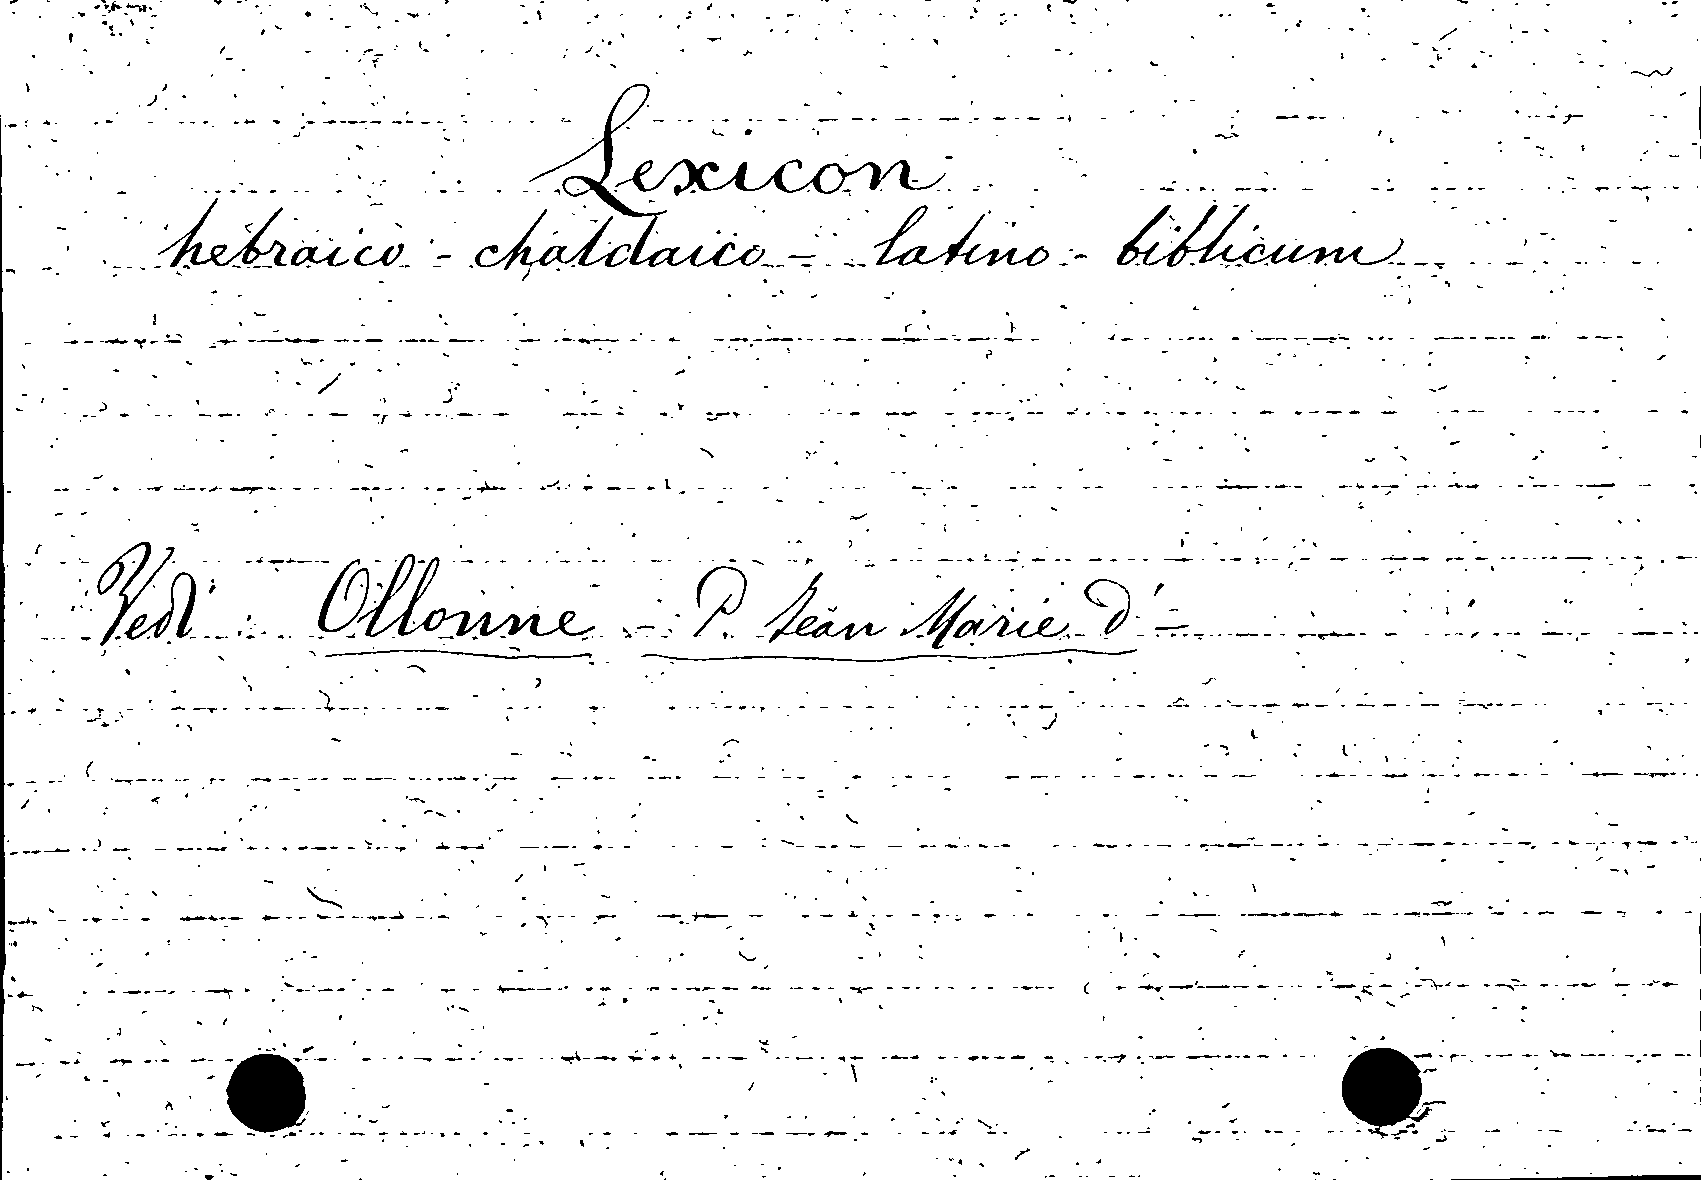 Lexicon
hebraico - chaldaico - latino - biblicum
Vedi Ollonne - P. Jean Marie D' -